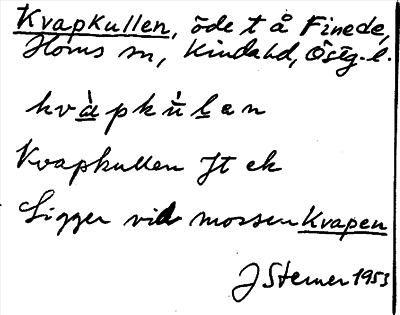 Kvapkullen, öde t å Finede,
Horns sn, Kinda hd, Östg. l.
kvàpkùlen
Kvapkullen Jt ek
Ligger vid mossen Kvapen
J Sterner 1953